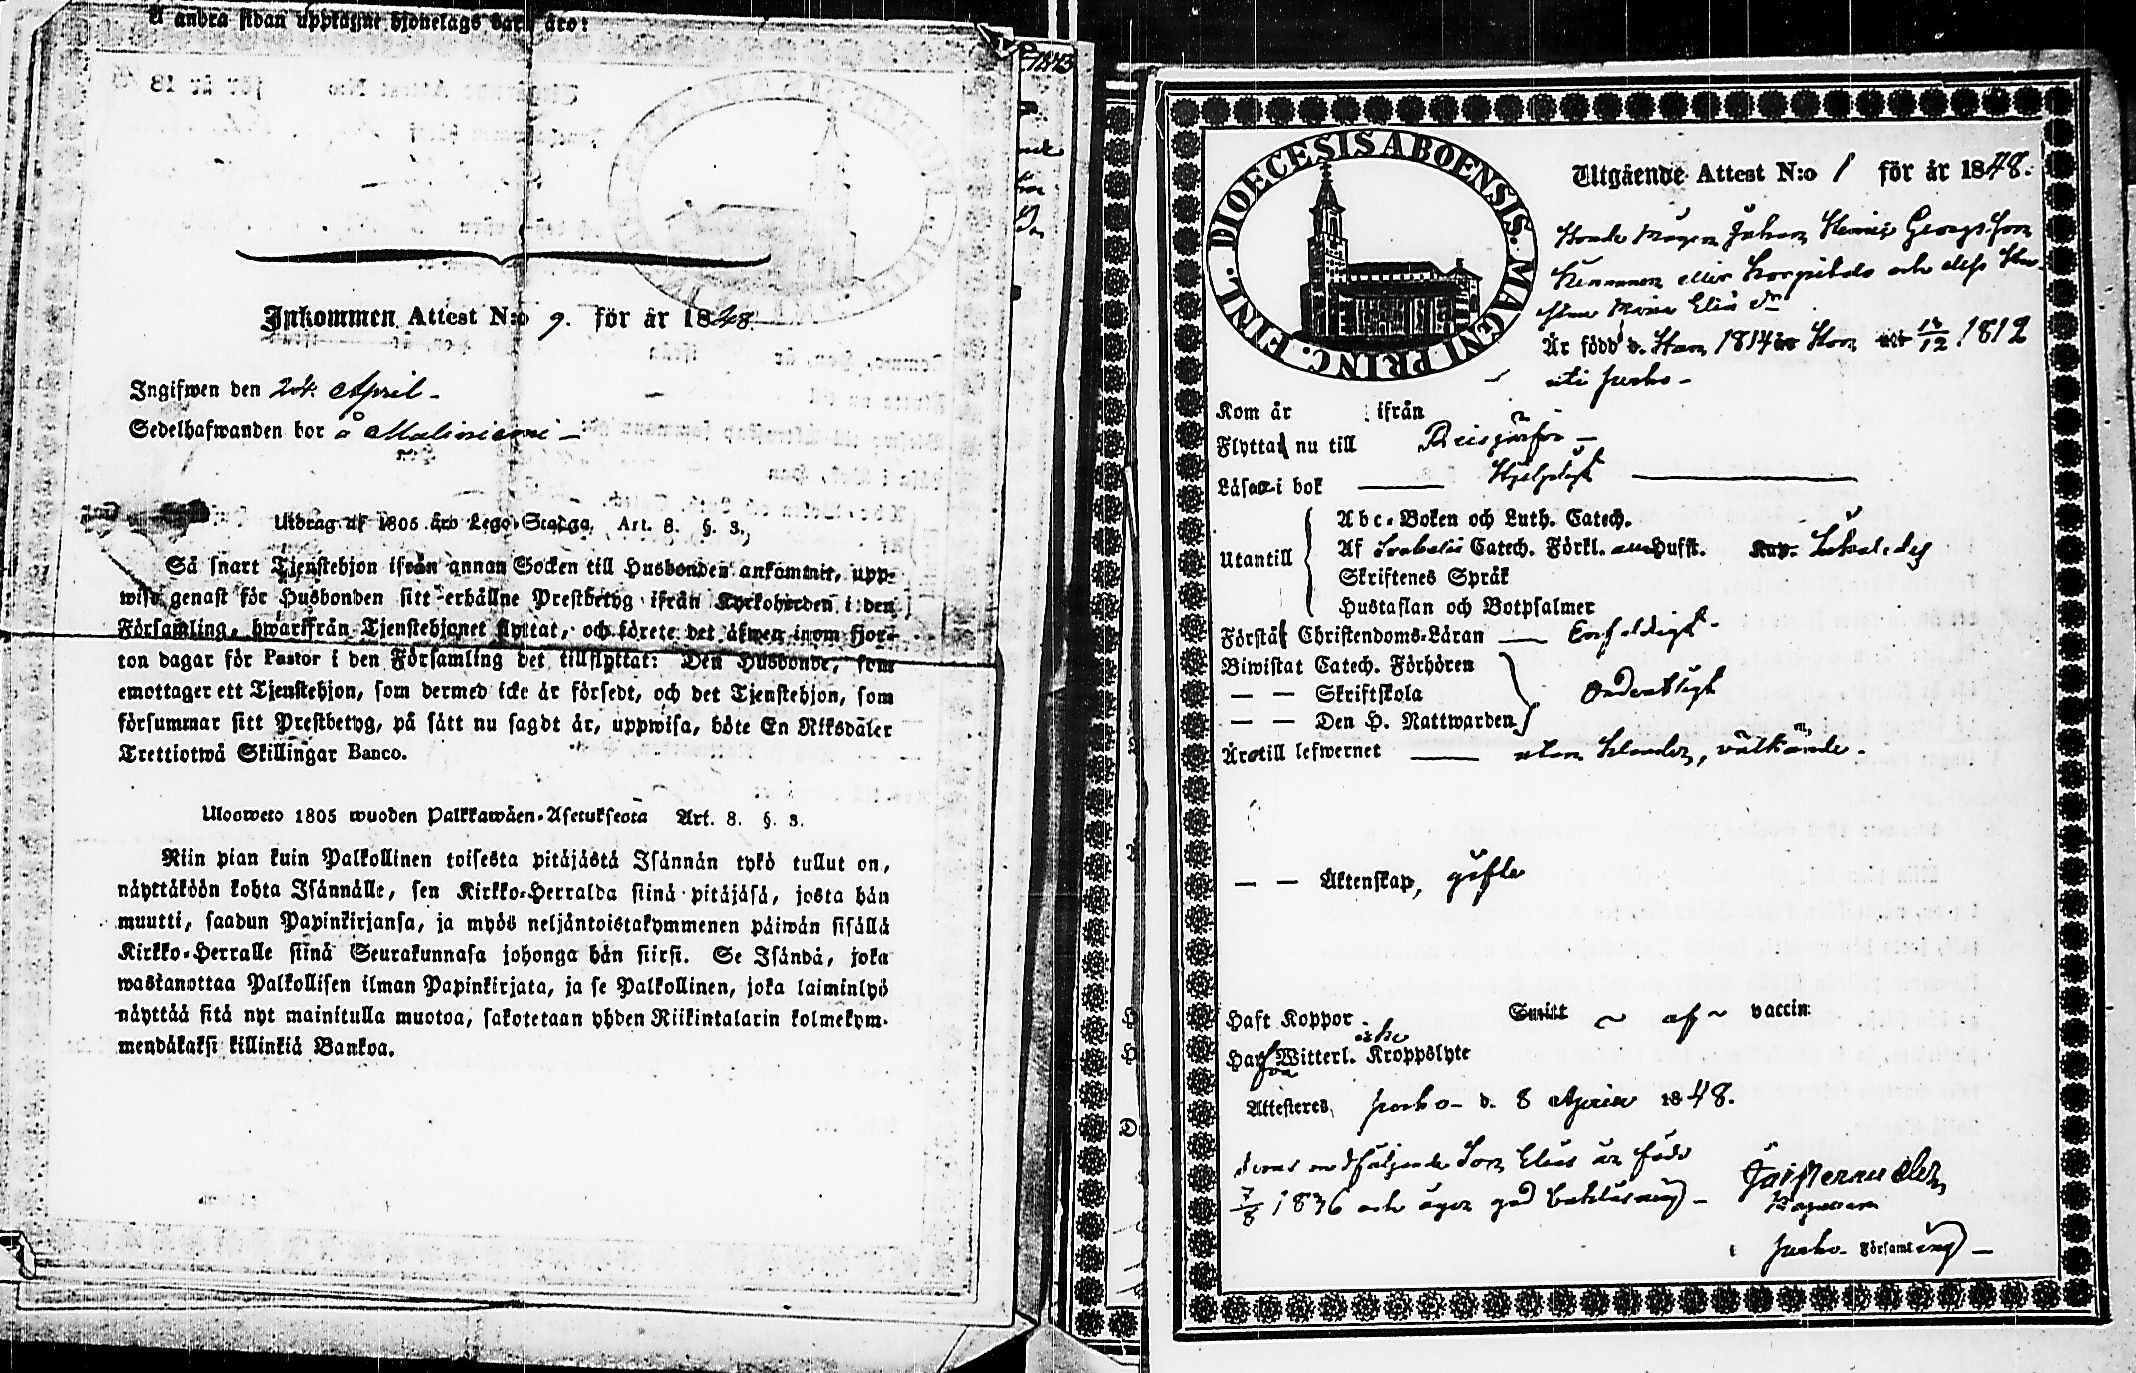 å andra sidan upptagne hjonelags barn äro:
Inkommen Attest N:o 9. för år 1848.
Ingifwen den 24. April.
Sedelhafwanden bor å Maliniemi
Utdrag af 1805 års Lego-Stadga. Art. 8. §. 3.
Så snart Tjenstehjon ifrån annan Socken till Husbonden ankommit, upp-
wise genast för Husbonden sitt erhållne Prestbetyg ifrån Kyrkoherden i den
Församling, hwarifrån Tjenstehjonet flyttat, och förete det äfwen inom fjor-
ton dagar för Pastor i den Församling det tillflyttat: Den Husbonde, som
emottager ett Tjenstehjon, som dermed icke är försedt, och det Tjenstehjon, som
försummar sitt Prestbetyg, på sätt nu sagdt är, uppwisa, böte En Riksdaler
Trettiotwå Skillingar Banco.
Ulosweto 1805 wuoden Palkkawäen-Asetuksesta Art. 8. §. 3.
Niin pian kuin Palkollinen toisesta pitäjästä Isännän tykö tullut on,
näyttäköön kohta Isännälle, sen Kirkko-Herralda siinä pitäjäsä, josta hän
muutti, saadun Papinkirjansa, ja myös neljäntoistakymmenen päiwän sisällä
Kirkko-Herralle siinä Seurakunnasa johonga hän siirsi. Se Isändä, joka
wastanottaa Palkollisen ilman Papinkirjata, ja se Palkollinen, joka laiminlyö
näyttää sitä nyt mainitulla muotoa, sakotetaan yhden Riikintalarin kolmekym-
mendäkaksi killinkiä Bankoa.
1843
DIOECESIS ABOENSIS. MAGNI PRINC. FINL.
Utgående Attest N:o 1 för år 1848.
Johan Henric Georgsson
eller och dess
Maria Elias dr
Är född d. Han 1814 Hon 12 1812
uti Jurko
Kom år ifrån
Flyttat nu till Reisjärfvi
Läsa i bok Hjelpligt
Utantill
Abc-Boken och Luth. Catech.
Af Svebelii Catech. Förkl. Hufst. Kap.
Skriftenes Språk
Hustaflan och Botpsalmer
Förstår Christendoms-Läran Enfaldigt
Biwistat Catech. Förhören
— — Skriftskola Ordentligt
— — Den H. Nattwarden
Äro till lefwernet utan klander, välkände.
— — Äktenskap, gifte
Haft Koppor Smitt af vaccin
Hafva icke Witterl. Kroppslyte
Attesteres, d. 8 April 1848.
medföljande Son Elias är född
7/8 1836 och äger god
Församling